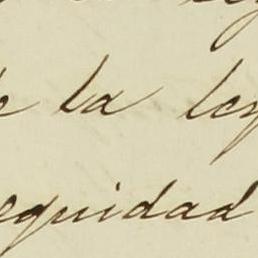 de la ley
equidad